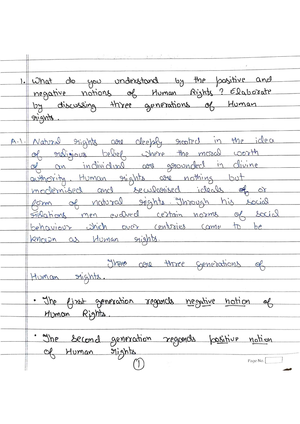 1. What do you understand by the positive and
negative notions of Human Rights? Elaborate
by discussing three generations of Human
rights.
A.1. Natural rights are deeply rooted in the idea
of religious belief where the moral worth
of an individual are grounded in divine
authority. Human rights are nothing but
modernised and secularised ideals of or
form of natural rights. Through his social
relations men evolved certain norms of social
behaviour which over centuries came to be
known as Human rights.
There are three generations of
Human rights.
• The first generation regards negative notion of
Human Rights.
• The second generation regards positive notion
of Human rights
1
Page No.